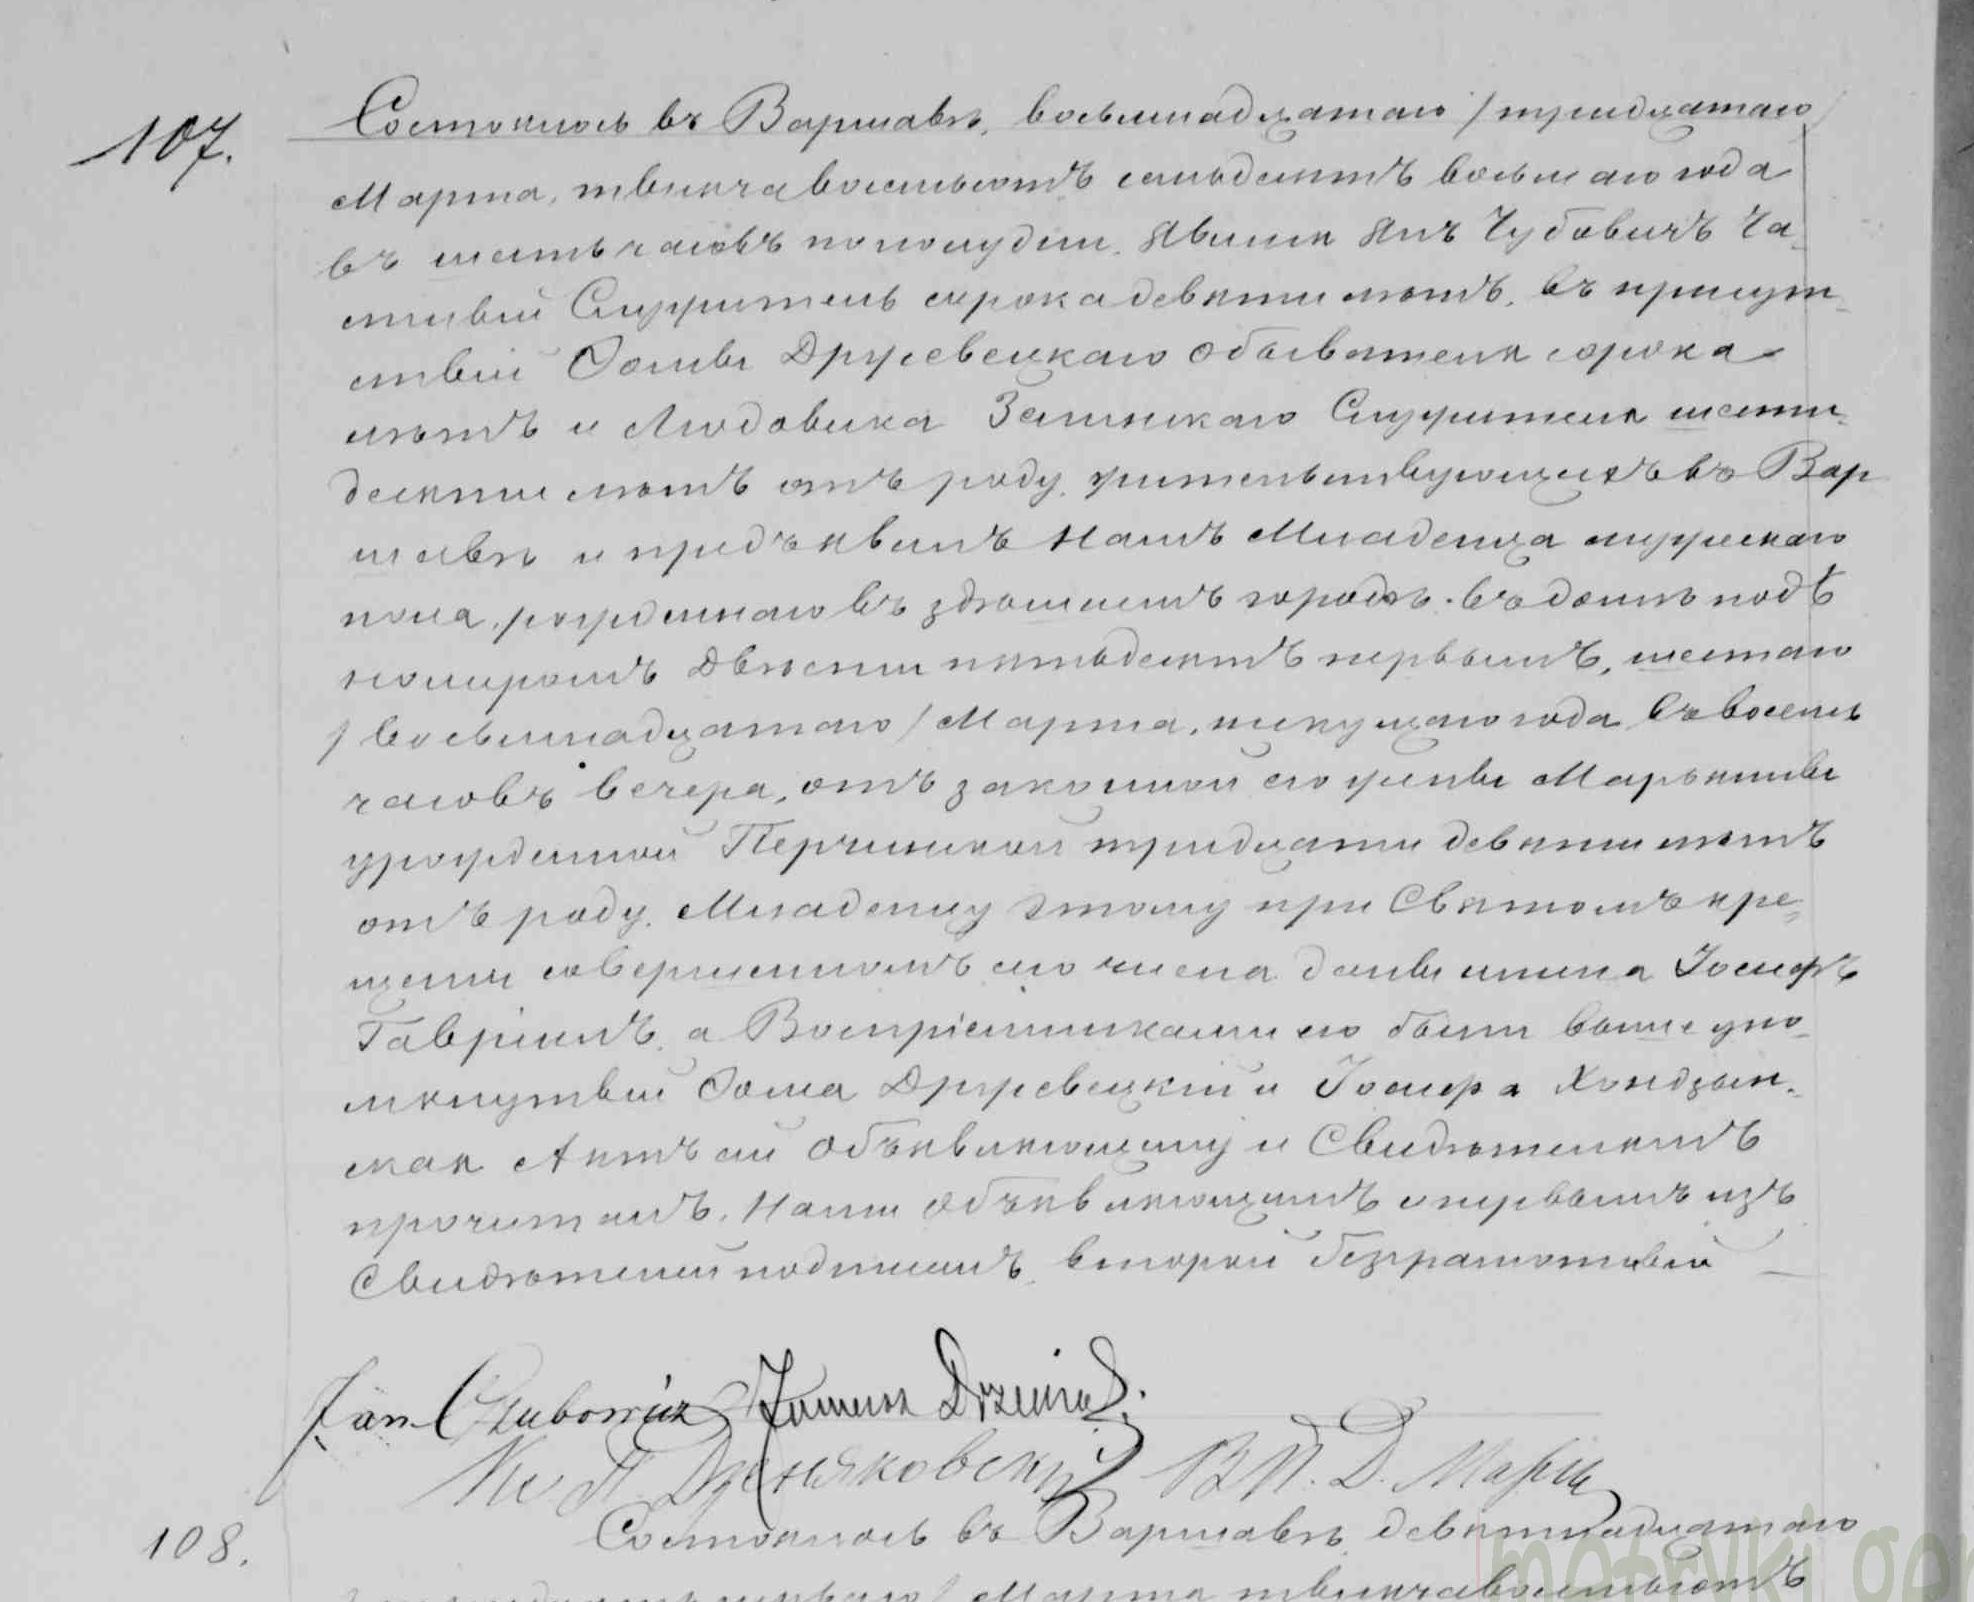 107.
Состоялось въ Варшавѣ, восьмнадцатаго /тридцатаго/
Марта, тысяча восемьсотъ семьдесятъ восьмаго года
въ шесть часовъ по полудни. Явился Янъ Чубовичъ Ча-
стный Служитель сорока девяти лѣтъ, въ присут-
ствіи Ѳомы Држевецкаго Обывателя сорока
лѣтъ и Людовика Служителя шести-
десяти лѣтъ отъ роду, жительствующихъ въ Вар
шавѣ и предъявилъ Намъ Младенца мужескаго
пола, рожденнаго въ здѣшнемъ городѣ въ домѣ подъ
номеромъ Двѣсти пятьдесятъ первымъ, шестаго
/восьмнадцатаго/ Марта, текущаго года въ восемь
часовъ вечера, отъ законной его жены Марьянны
урожденной тридцати девяти лѣтъ
отъ роду. Младенцу этому при Святомъ кре-
щеніи совершенномъ сего числа даны имена Іосифъ
Гавріилъ, а Воспріемниками его были выше упо-
мянутый Ѳома Држевецкій и Іосифа Хондзын-
ская Актъ сей Объявляющему и Свидѣтелямъ
прочитанъ, Нами Объявляющимъ и первымъ изъ
Свидѣтелей подписанъ, второй безграмотный
Jan Czubowicz Tomasz
Кс П. В П. Д. Маріи
108.
Состоялось въ Варшавѣ, девятнадцатаго
/тридцать перваго/ Марта тысяча восемьсотъ
matryki.gen